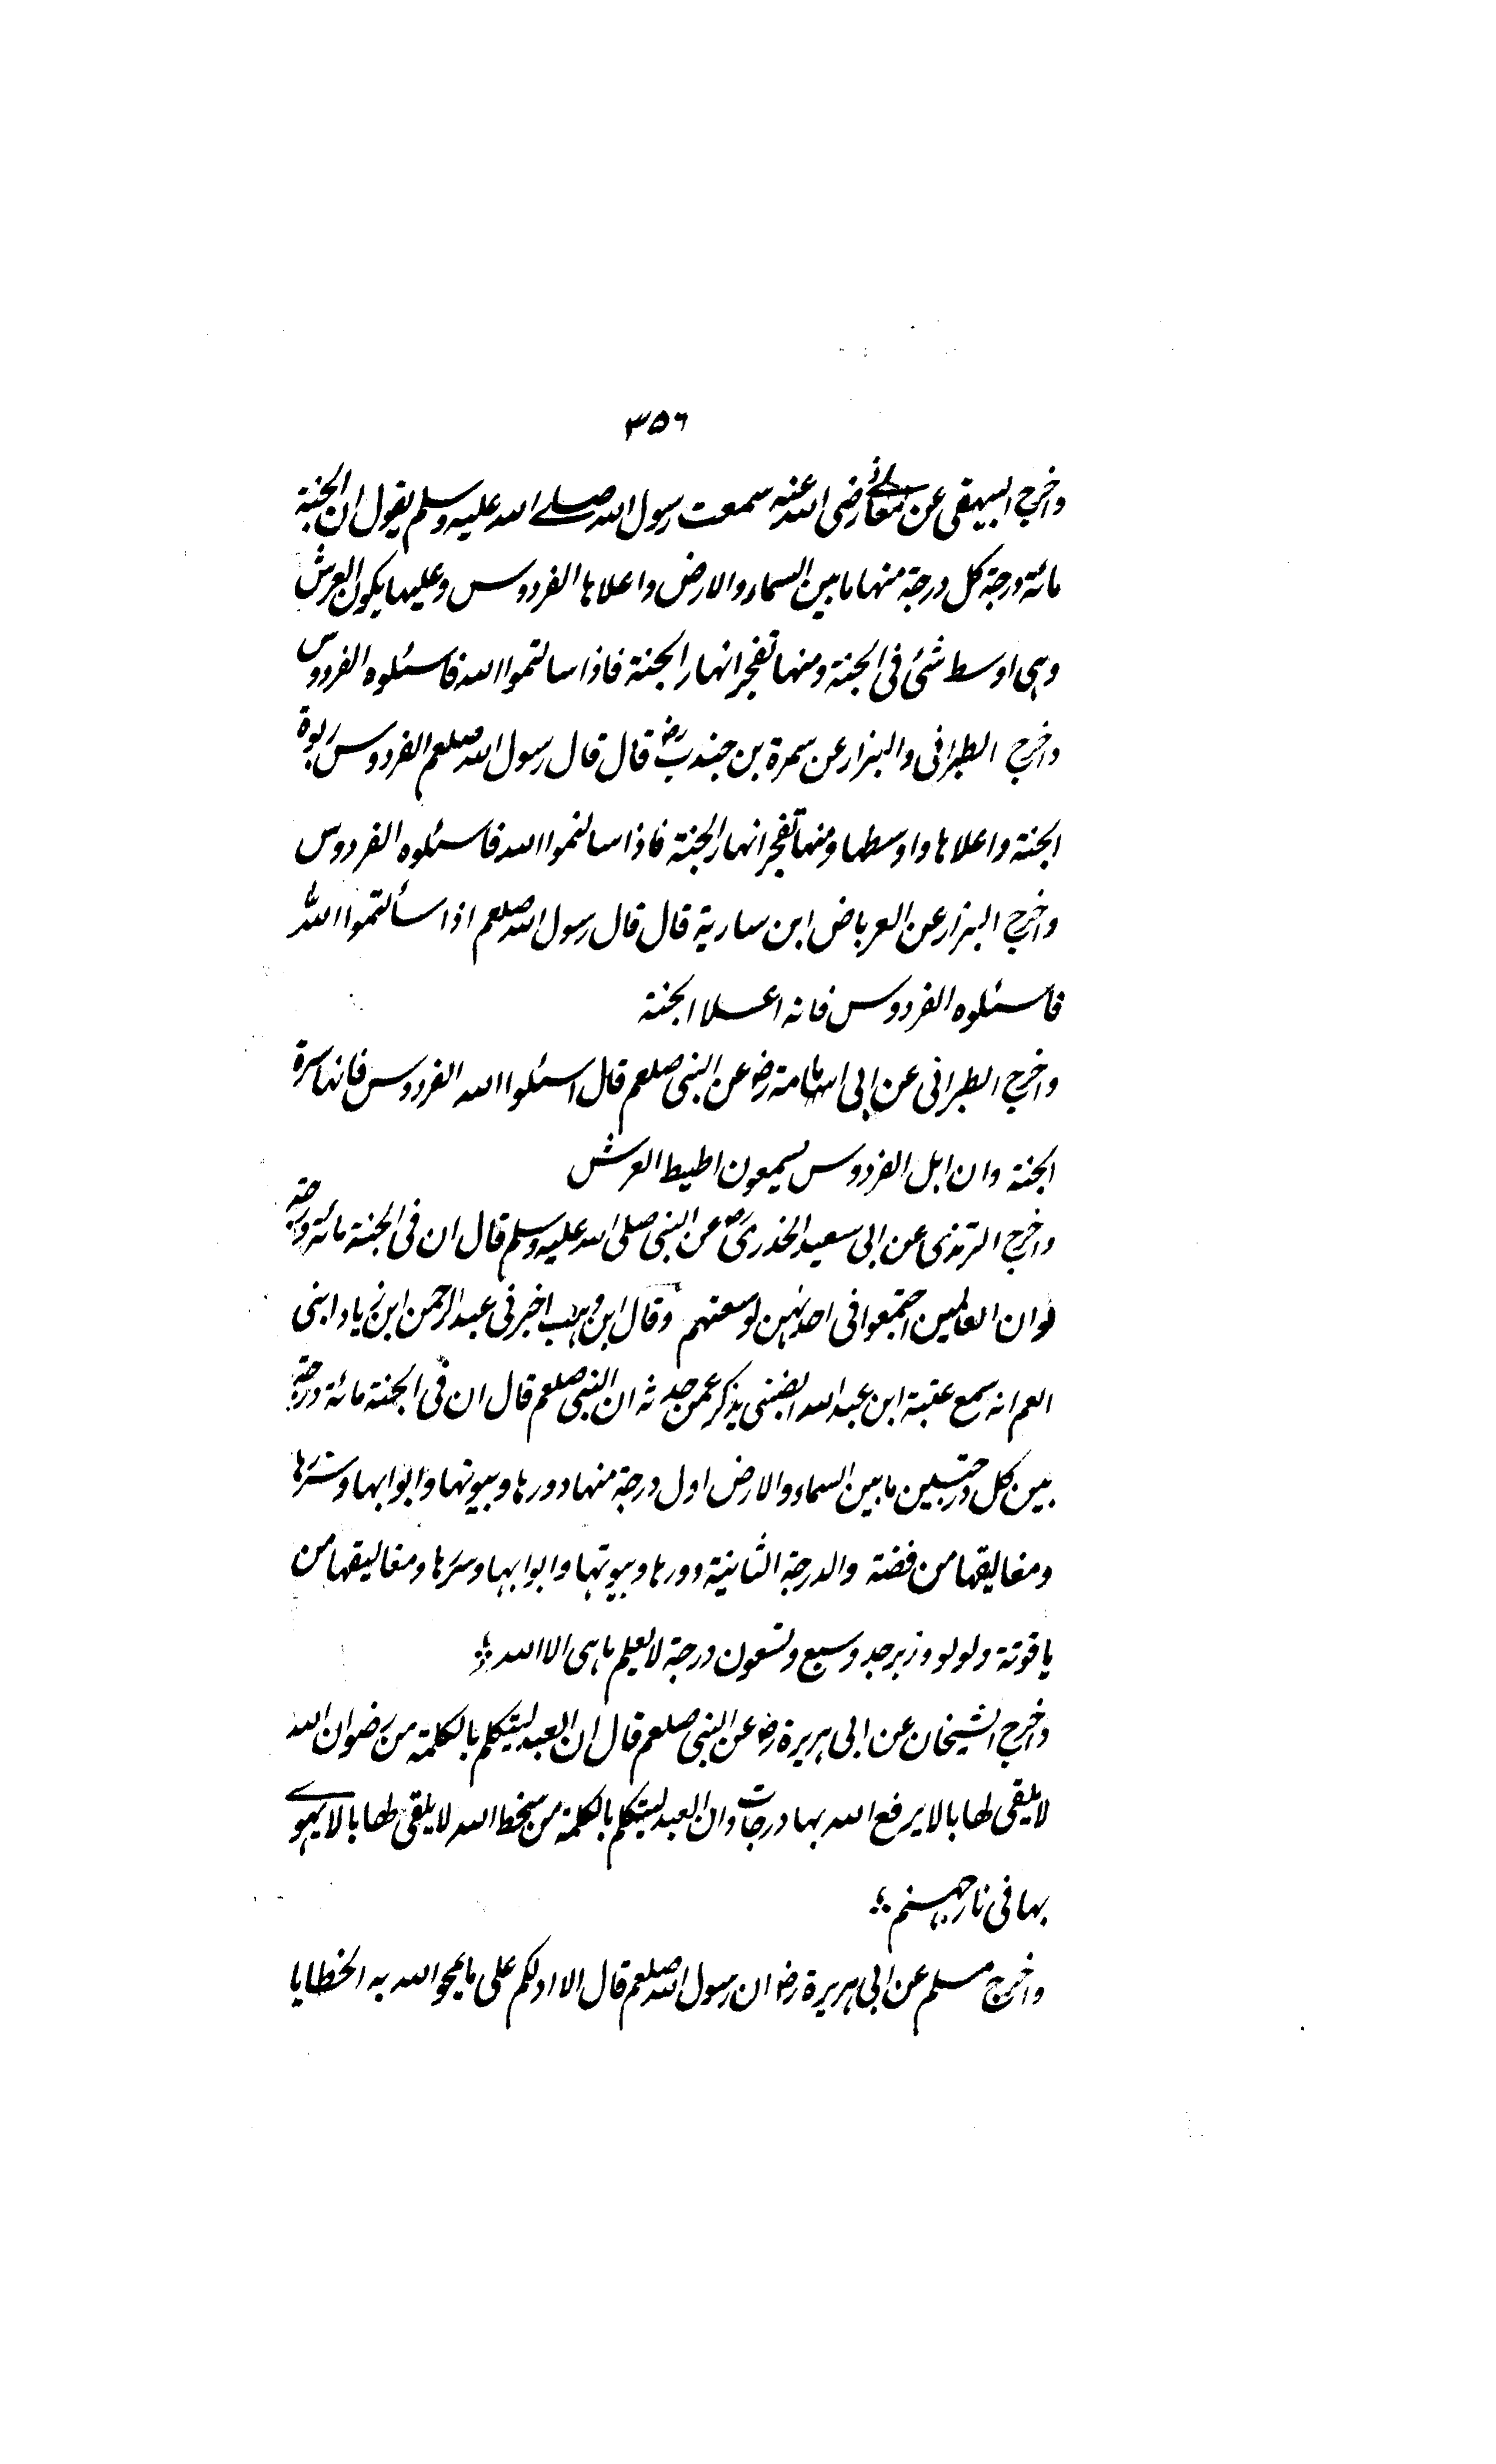 ٣٥٦
واخرج البيهقى عن معاذ رضى الله عنه سمعت رسول الله صلے الله عليه وسلم يقول ان الجنة
مائة درجة كل درجة منها ما بين السماء والارض واعلاها الفردوس وعليها يكون العرش
وہى اوسط شئ فى الجنة ومنها تفجر انهار الجنة فاذا سالتموا الله فاسئلوه الفردوس
واخرج الطبرانى والبزار عن سمرة بن جندب رض قال قال رسول الله صلعم الفردوس ربوة
الجنة واعلاها واوسطها ومنها تفجر انهار الجنة فاذا سالتموا الله فاسئلوه الفردوس
واخرج البزار عن العرباض ابن سارية قال قال رسول الله صلعم اذا سألتموا الله
فاسئلوه الفردوس فانه اعلا الجنة
واخرج الطبرانى عن ابى امامة رض عن النبى صلعم قال اسئلوا الله الفردوس فانها سرة
الجنة وان اہل الفردوس يسمعون اطيط العرش
واخرج الترمذى عن ابى سعيد الخدرى رض عن النبى صلى الله عليه وسلم قال ان فى الجنة مائة درجة
لو ان العالمين اجتمعوا فى احدٰہن لوسعتهم وقال ابن وہب اخبرنى عبد الرحمن ابن زياد ابنى
العم انه سمع عقبة ابن عبد الله الضبنى يذكر عمن حدثه ان النبى صلعم قال ان فى الجنة مائة درجة
بين كل درجتين ما بين السماء والارض اول درجة منها دورها وبيوتها وابوابها وسررها
ومغاليقها من فضة والدرجة الثانية دورها وبيوتها وابوابها وسررها ومغاليقها من
ياقوتة ولولو وزبرجد وسبع وتسعون درجة لا يعلم ما ہى الا الله
واخرج الشيخان عن ابى ہريرة رض عن النبى صلعم قال ان العبد ليتكلم بالكلمة من رضوان الله
لا يلقى لها بالا يرفع الله بها درجات وان العبد ليتكلم بالكلمة من سخط الله لا يلقى لها بالا يہوے
بها فى نار جہنم
واخرج مسلم عن ابى ہريرة رض ان رسول الله صلعم قال الا ادلكم على ما يمحو الله به الخطايا